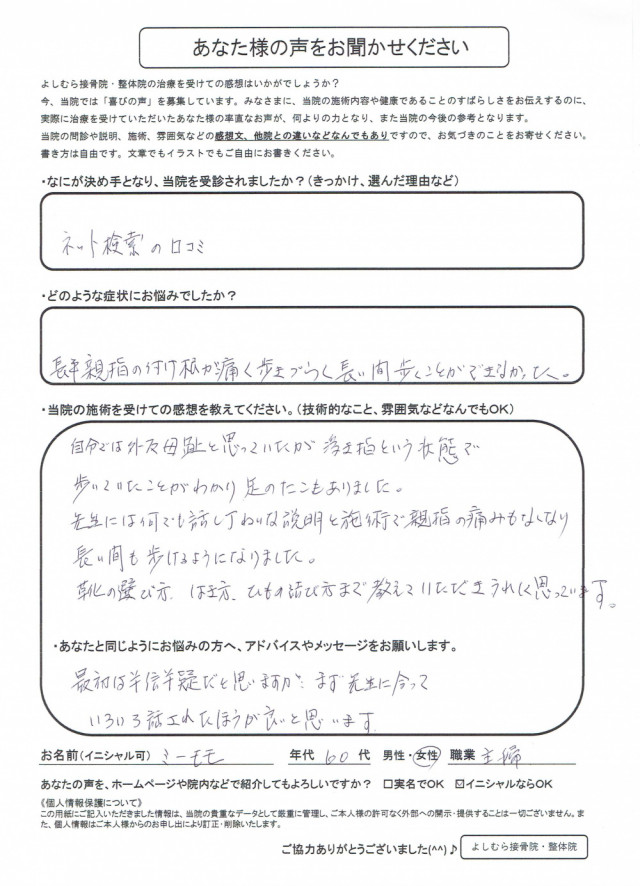 あなた様の声をお聞かせください
よしむら接骨院・整体院の治療を受けての感想はいかがでしょうか?
今、当院では「喜びの声」を募集しています。みなさまに、当院の施術内容や健康であることのすばらしさをお伝えするのに、
実際に治療を受けていただいたあなた様の率直なお声が、何よりの力となり、また当院の今後の参考となります。
当院の問診や説明、施術、雰囲気などの感想文、他院との違いなどなんでもありですので、お気づきのことをお寄せください。
書き方は自由です。文章でもイラストでもご自由にお書きください。
・なにが決め手となり、当院を受診されましたか?(きっかけ、選んだ理由など)
ネット検索の口コミ
・どのような症状にお悩みでしたか?
親指の付け根が痛く歩きづらく長い間歩くことができなかった。
・当院の施術を受けての感想を教えてください。(技術的なこと、雰囲気などなんでもOK)
自分では外反母趾と思っていたが浮き指という状態で
歩いていたことがわかり足のたこもありました。
先生には何でも話し丁ねいな説明と施術で親指の痛みもなくなり
長い間も歩けるようになりました。
靴の選び方、はき方、ひもの結び方まで教えていただきうれしく思っています。
・あなたと同じようにお悩みの方へ、アドバイスやメッセージをお願いします。
最初は半信半疑だと思いますが、まず先生に会って
いろいろ話されたほうが良いと思います
お名前(イニシャル可) ミーモモ 年代 60 代 男性・女性 職業 主婦
あなたの声を、ホームページや院内などで紹介してもよろしいですか? □実名でOK ☑イニシャルならOK
《個人情報保護について》
この用紙にご記入いただきました情報は、当院の貴重なデータとして厳重に管理し、ご本人様の許可なく外部への開示・提供することは一切ございません。ま
た、個人情報はご本人様からのお申し出により訂正・削除いたします。
ご協力ありがとうございました(^^)♪ よしむら接骨院・整体院